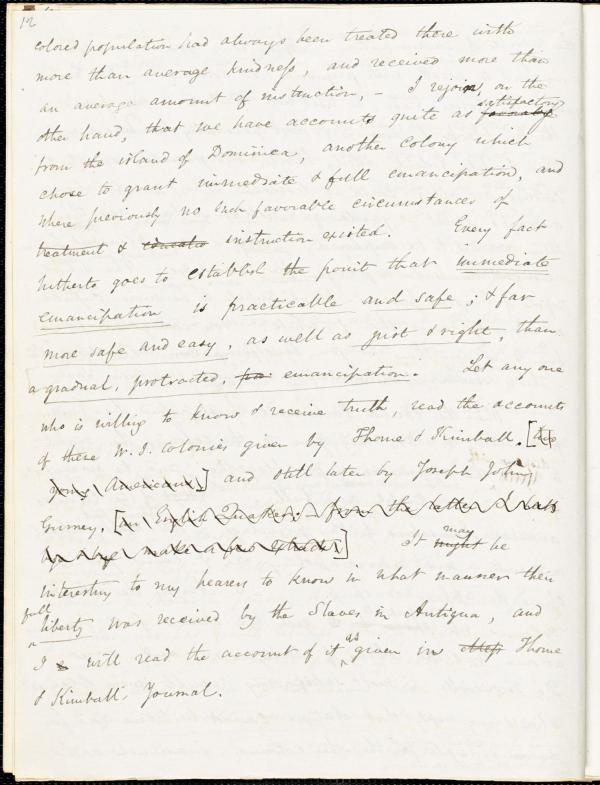 12
colored population had always been treated there with
more than average kindness, and received more than
an average amount of instruction, - I rejoin, on the
satisfactory
other hand, that we have accounts quite as favorable
from the island of Dominica, another Colony which
chose to grant immediate & full emancipation, and
where previously no such favorable circumstances of
treatment & education instruction existed. Every fact
hitherto goes to establish the point that immediate
emancipation is practicable and safe; & far
more safe and easy, as well as just & right, than
a gradual, protracted, emancipation. Let any one
who is willing to know & receive truth, read the accounts
of these W. I. colonies given by Thome & Kimball. [two
young Americans,] and still later by Joseph John
Gurney. [an English Quaker. - from the latter I
make a few extracts]
may
It might be
interesting to my hearers to know in what manner their
full
liberty was received by the Slaves in Antigua, and
as
I will read the account of it given in Thome
& Kimball's Journal.